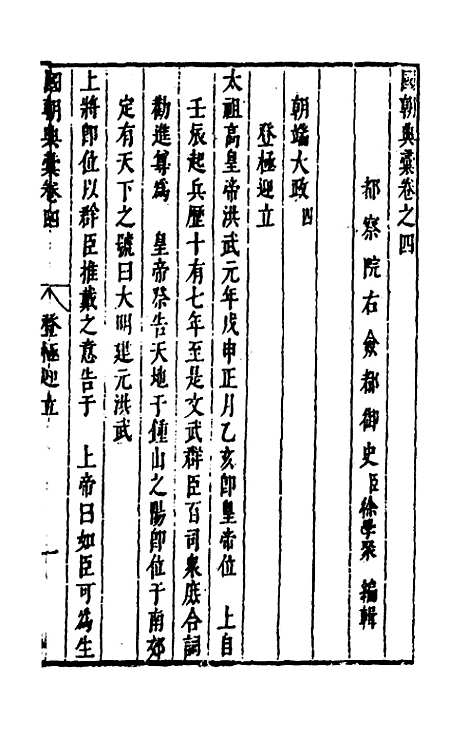 國朝典彙卷之四
都察院右僉都御史臣徐學聚 編輯
朝端大政 四
登極迎立
太祖高皇帝洪武元年戊申正月乙亥卽皇帝位 上自
壬辰起兵歷十有七年至是文武群臣百司衆庶合詞
勸進尊爲 皇帝祭告天地于鍾山之陽卽位于南郊
定有天下之號曰大明建元洪武
上將卽位以群臣推戴之意告于 上帝曰如臣可為生
國朝典彙卷四 登極迎立 一